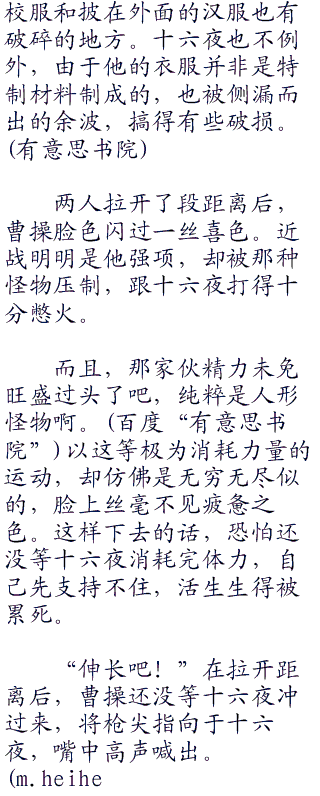 校服和披在外面的汉服也有
破碎的地方。十六夜也不例
外，由于他的衣服并非是特
制材料制成的，也被侧漏而
出的余波，搞得有些破损。
(有意思书院)
两人拉开了段距离后，
曹操脸色闪过一丝喜色。近
战明明是他强项，却被那种
怪物压制，跟十六夜打得十
分憋火。
而且，那家伙精力未免
旺盛过头了吧，纯粹是人形
怪物啊。(百度“有意思书
院”)以这等极为消耗力量的
运动，却仿佛是无穷无尽似
的，脸上丝毫不见疲惫之
色。这样下去的话，恐怕还
没等十六夜消耗完体力，自
己先支持不住，活生生得被
累死。
“伸长吧！”在拉开距
离后，曹操还没等十六夜冲
过来，将枪尖指向于十六
夜，嘴中高声喊出。
(m.heihe